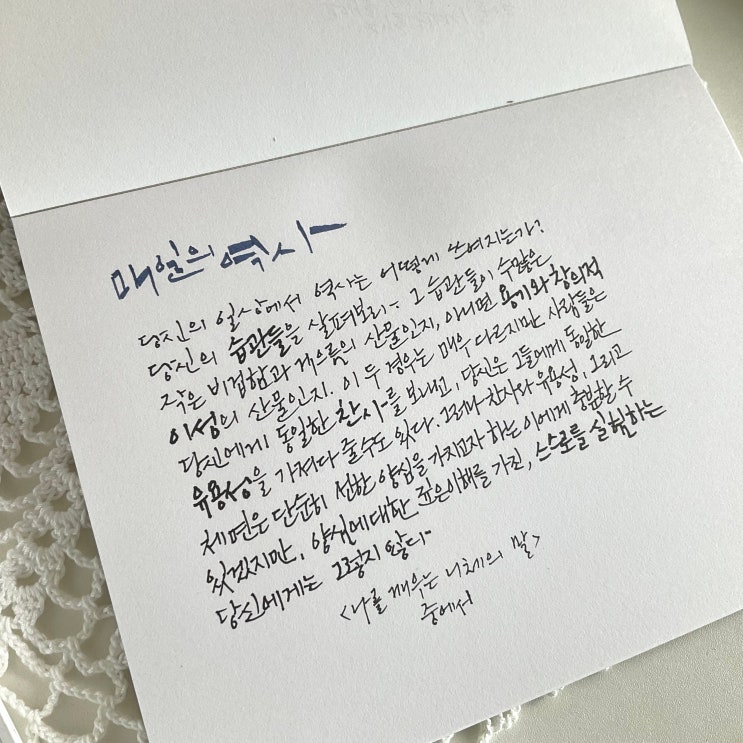 매일의 역사
당신의 일상에서 역사는 어떻게 쓰여지는가?
당신의 습관들을 살펴보라- 그 습관들이 수많은
작은 비겁함과 게으름의 산물인지, 아니면 용기와 창의적
이성의 산물인지. 이 두 경우는 매우 다르지만 사람들은
당신에게 동일한 찬사를 보내고, 당신은 그들에게 동일한
유용성을 가져다 줄수도 있다. 그러나 찬사와 유용성, 그리고
체면은 단순히 선한 양심을 가지고자 하는 이에게 충분할 수
있겠지만, 양심에대한 깊은이해를 가진, 스스로를 실험하는
당신에게는 그렇지 않다-
<나를 깨우는 니체의 말>
중에서